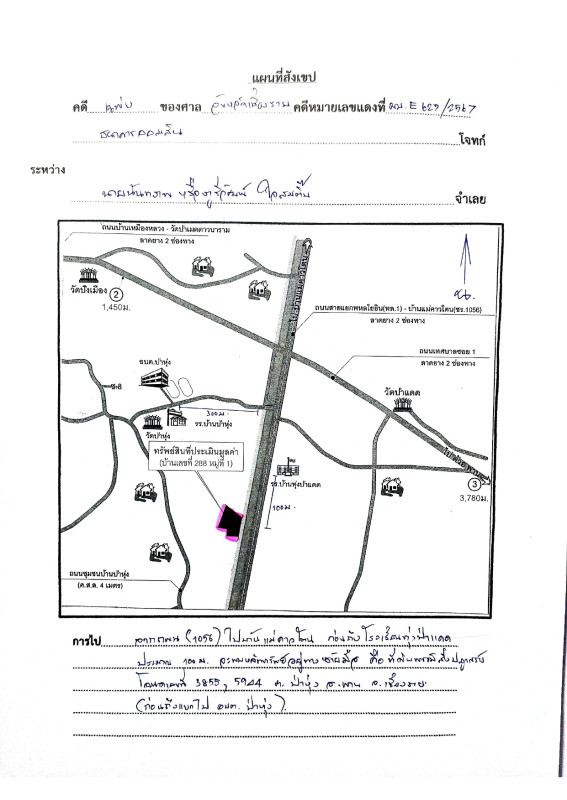 แผนที่สังเขป
คดี แพ่ง ของศาล จังหวัดเชียงราย คดีหมายเลขแดงที่ ผบ.E 629/2567
ธนาคารออมสิน โจทก์
ระหว่าง
จำเลย
ถนนบ้านเหมืองหลวง - วัดป่าแดดถาวนาราม
ลาดยาง 2 ช่องทาง
วัดปิงเมือง
2
1,450ม.
น.
ถนนสายแยกพหลโยธิน(ทล.1) - บ้านแม่คาวโตน(ชร.1056)
ลาดยาง 2 ช่องทาง
ถนนเทศบาลซอย 1
ลาดยาง 2 ช่องทาง
วัดป่าแดด
อบต.ป่าหุ่ง
ซ.8
300ม.
รร.บ้านป่าหุ่ง
วัดป่าหุ่ง
ทรัพย์สินที่ประเมินมูลค่า
(บ้านเลขที่ 288 หมู่ที่ 1)
รร.บ้านทุ่งป่าแดด
100ม.
3
3,780ม.
ถนนชุมชนบ้านป่าหุ่ง
(ค.ส.ล. 4 เมตร)
การไป จากถนน (1056) ไปบ้านแม่คาวโตน ก่อนถึงโรงเรียนทุ่งป่าแดด
ประมาณ 100 ม. จะพบหลักทรัพย์อยู่ทางซ้ายมือ คือ ที่ดินพร้อมสิ่งปลูกสร้าง
โฉนดเลขที่ 3855, 5944 ต. ป่าหุ่ง อ.พาน จ.เชียงราย
(ก่อนถึงแยกไป อบต. ป่าหุ่ง).